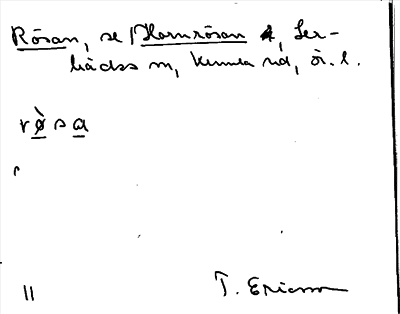 Rösan, se Kvarnrösan 4, Ler-
bäcks sn, Kumla hd, ör. l.
rø̀sa
11
T. Ericsson